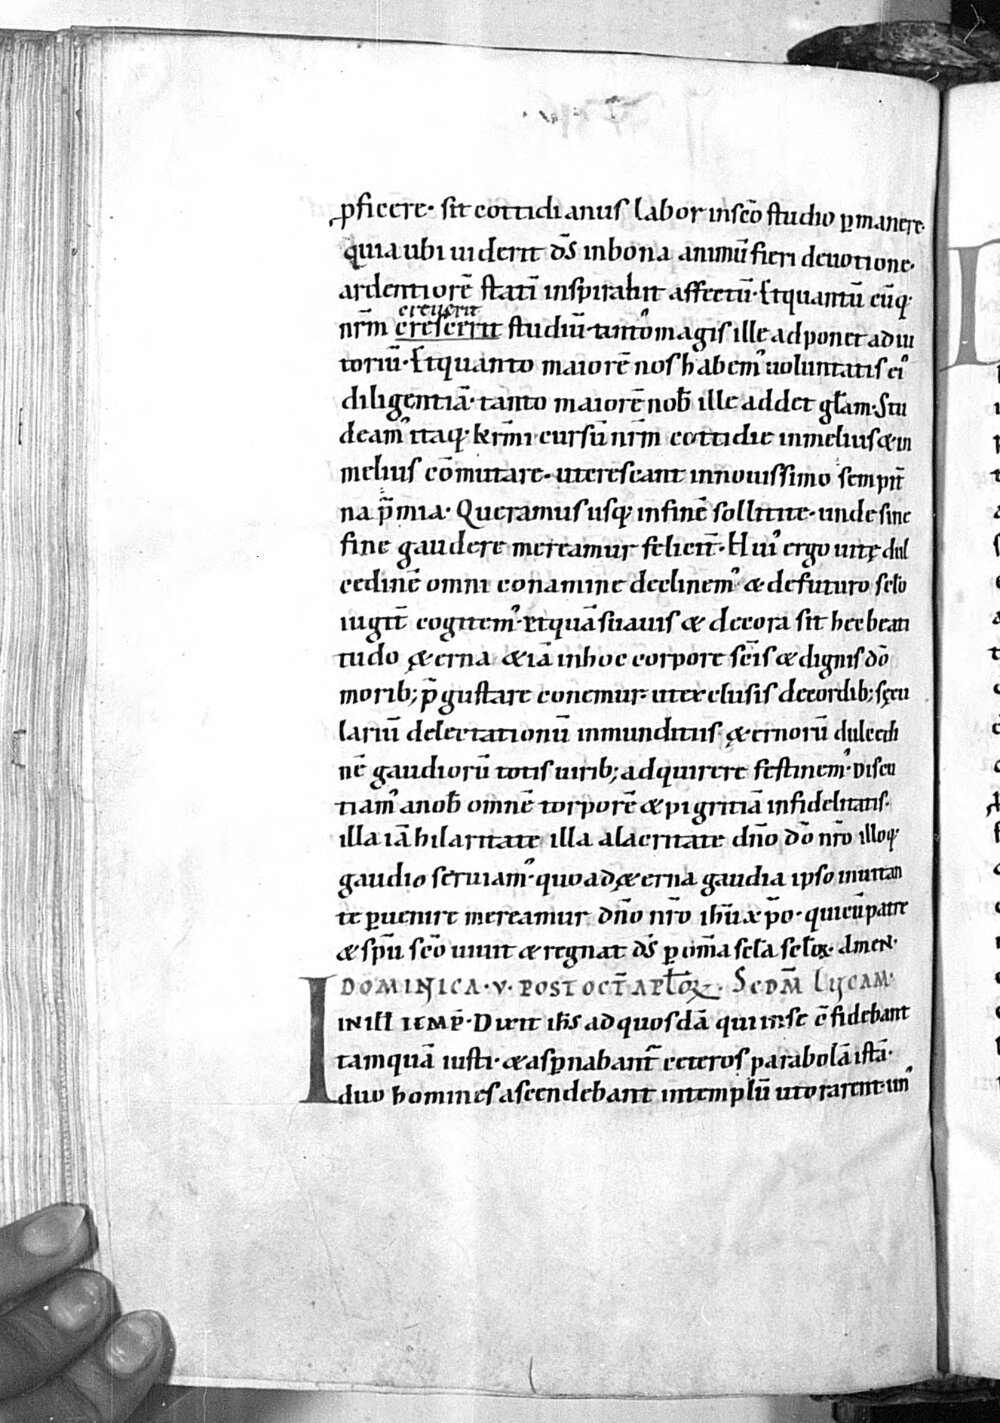 ꝓficere· sit cottidianus labor in sc̄o studio ꝑmanere·
quia ubi uiderit d̄s in bona animū fieri deuotione·
ardentiorē statī inspirabit affectū· Et quantū cūq;
creuerit
nr̄m creserrit studiū· tanto magis ille adponet adiu
toriū· Et quanto maiorē nos habem᾽ uoluntatis ei᾽
diligentiā· tanto maiorē nob̄ ille addet gl̄am· Stu
deam᾽ itaq; kr̄mi cursū nr̄m cottidie in melius & in
melius cōmutare· ut crescant in nouissimo sempit̄
na p̄mia· Queramus usq; in finē sollicite· unde sine
fine gaudere mereamur felicit̄· Hui᾽ ergo uitę dul
cedinē omni conamine declinem᾽ & de futuro sc̄lo
iugit̄ cogitem᾽· Et quā suauis & decora sit hec beati
tudo ęterna & iā in hoc corpore sc̄is & dignis dō
morib; p̄gustare conemur· ut exclusis de cordib; sęcu
lariū delectationū inmunditiis· ęternorū dulcedi
nē gaudiorū totis uirib; adquirere festinem᾽· Discu
tiam᾽ a nob̄ omnē torporē & pigritiā infidelitatis·
illa iā hilaritate illa alacritate dn̄o dō nr̄o illoq;
gaudio seruiam᾽· quo ad ęterna gaudia ipso inuitan
te ꝑuenire mereamur dn̄o nr̄o ih̄u xp̄o· qui cū patre
& sp̄u sc̄o uiuit & regnat d̄s ꝑ om̄a sc̄la sc̄loꝝ· Amen·
DOMINICA· V· POST OCT̄ APL̄OꝜ· SCDM̄ LUCAM·
IN ILL̄ TEMP̄· Dixit ih̄s ad quosdā qui in se c̄fidebant
tamquā iusti· & aspnabant᾽ ceteros parabolā istā·
duo homines ascendebant in templū ut orarent· un᾽